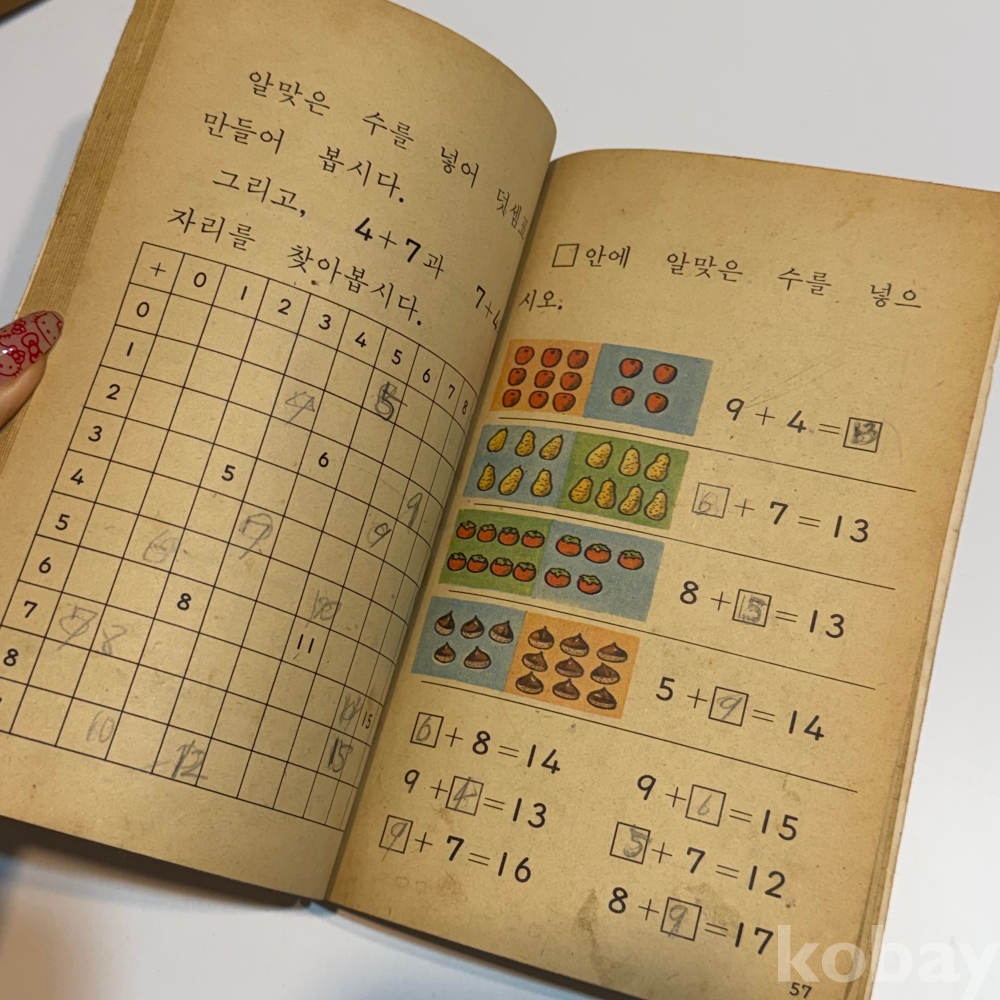 알맞은 수를 넣어
만들어 봅시다.
그리고, 4+7과 7+4
자리를 찾아봅시다.
+ 0 1 2 3 4 5 6 7 8
0
1
2
3 5 6
4
5
6 8
7 11
8
15
15
10
12
□안에 알맞은 수를 넣으
시오.
9 + 4 = 13
6 + 7 = 13
8 + 5 = 13
5 + 9 = 14
6 + 8 = 14
9 + 6 = 15
9 + 4 = 13
5 + 7 = 12
9 + 7 = 16
8 + 9 = 17
57
kobay